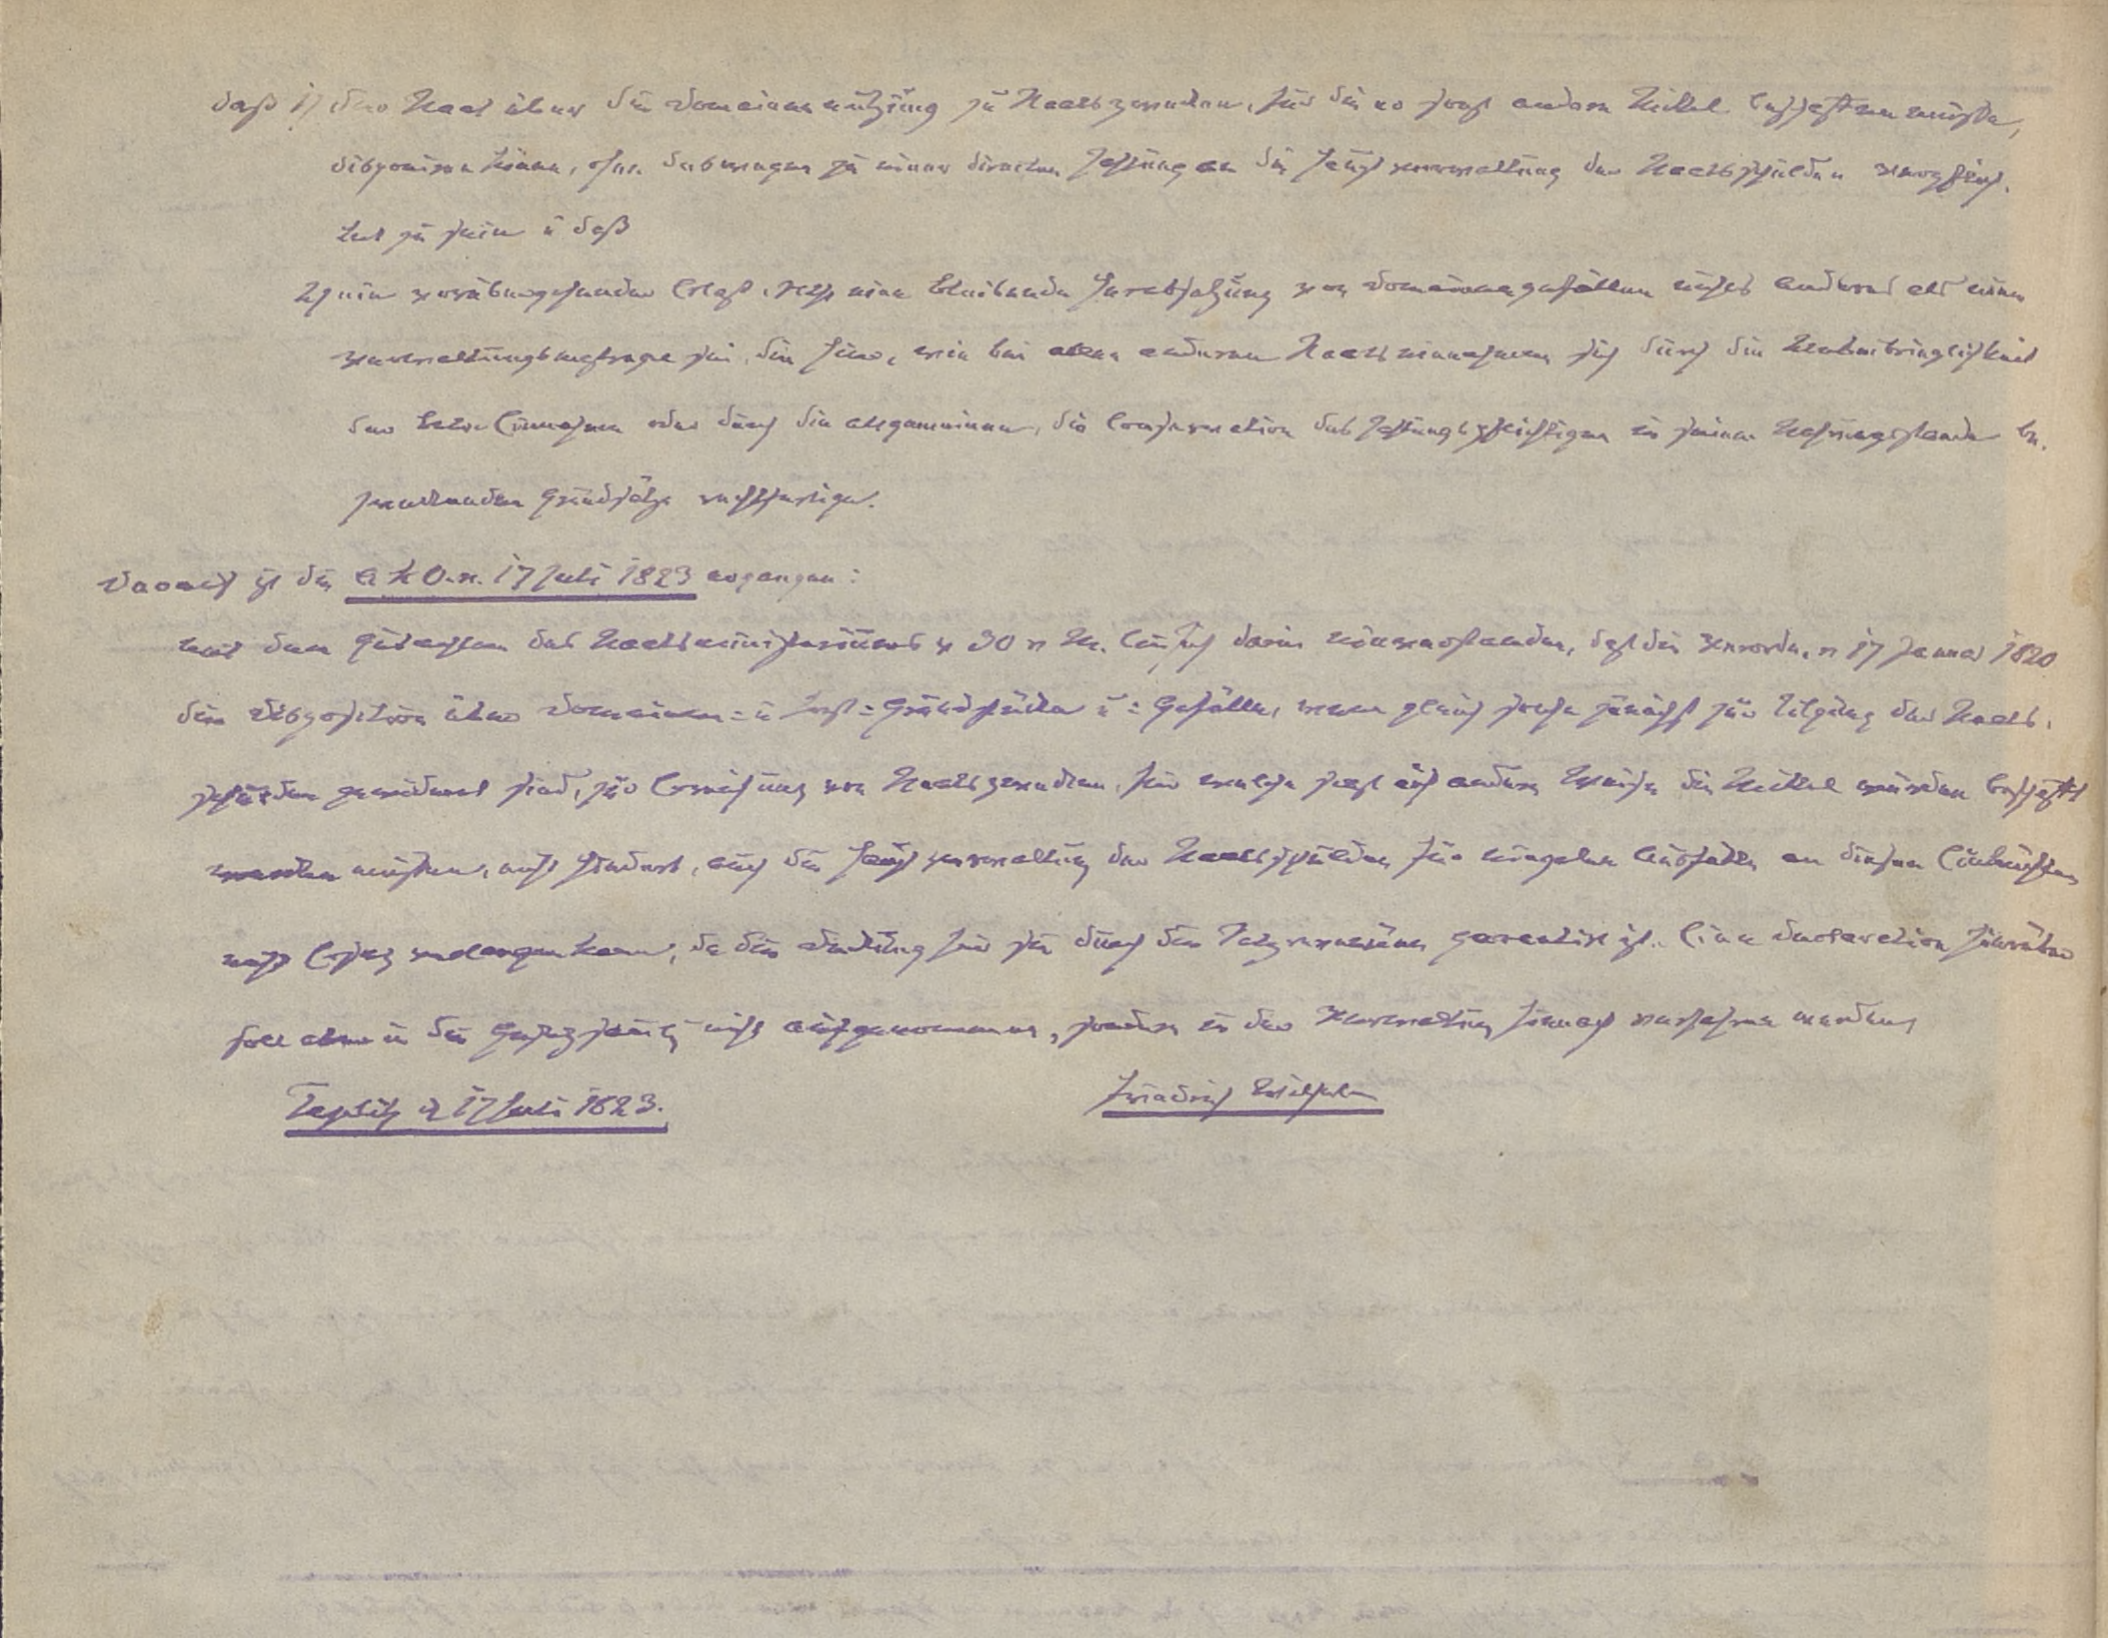 daß 1) der Staat über die Domainennutzung zu Staatszwecken, für die er sonst andere Mittel beschaffen müßte,
disponiren könne, ohne deswegen zu einer directen Zahlung an die Hauptverwaltung der Staatsschulden verpflich-
tet zu sein u daß
2) ein vorübergehender Erlaß, resp. eine bleibende Herabsetzung von Domainengefällen nichts anderes als eine
Verwaltungsmaßregel sei, die hier, wie bei allen anderen Staatseinnahmen sich durch die Unbeibringlichkeit
der Einnahmen oder durch die allgemeinen, die Conservation des Zahlungspflichtigen in seinem Nahrungsstande be-
zweckenden Grundsätze rechtfertige.
Danach ist die A. K. O. v. 17 Juli 1823 ergangen:
mit dem Gutachten des Staatsministeriums v 30 v M. bin Ich darin einverstanden, daß die Verordn. v 17 Januar 1820
die Disposition über Domainen- u Forst-Grundstücke u -Gefälle, wenn gleich solche zunächst zur Tilgung der Staats-
schulden gewidmet sind, zur Erreichung von Staatszwecken, für welche sonst auf andere Weise die Mittel würden beschafft
werden müssen, nicht hindert, auch die Hauptverwaltung der Staatsschulden für einzelne Ausfälle an diesen Einkünften
nicht Ersatz verlangen kann, da die Deckung für sie durch die garantirt ist. Eine Declaration hierüber
soll aber in die Gesetzsammlg nicht aufgenommen, sondern in der Verwaltung hienach verfahren werden
Teplitz d 17 Juli 1823. Friedrich Wilhelm